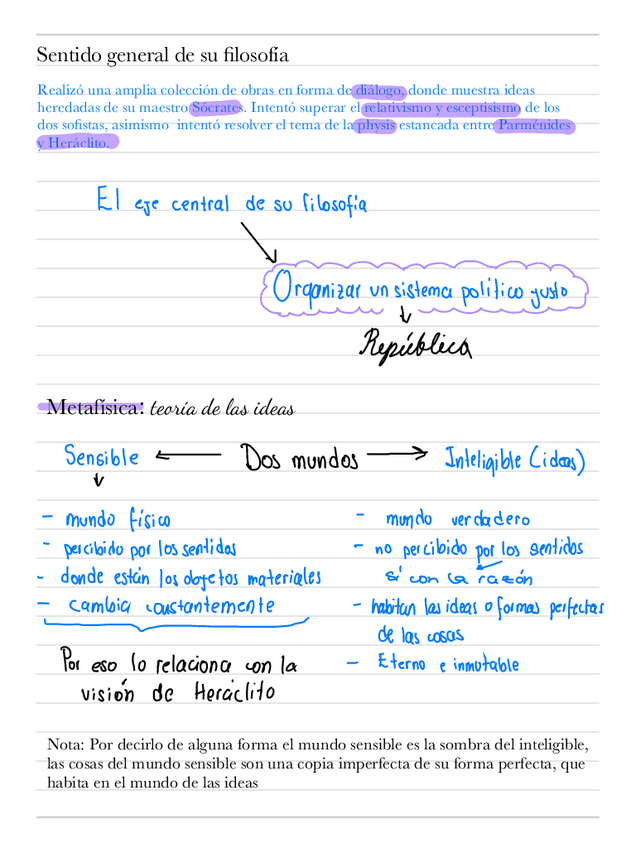 Sentido general de su filosofía
Realizó una amplia colección de obras en forma de diálogo, donde muestra ideas
heredadas de su maestro Sócrates. Intentó superar el relativismo y esceptisismo de los
dos sofistas, asimismo intentó resolver el tema de la physis estancada entre Parménides
y Heráclito.
El eje central de su filosofía
Organizar un sistema político gusto
República
Metafísica: teoría de las ideas
Sensible Dos mundos Inteligible (ideas)
- mundo físico
- percibido por los sentidos
- donde están los objetos materiales
- cambia constantemente
Por eso lo relaciona con la
visión de Heráclito
- mundo verdadero
- no percibido por los sentidos
sí con la razón
- habitan las ideas o formas perfectas
de las cosas
- Eterno e inmutable
Nota: Por decirlo de alguna forma el mundo sensible es la sombra del inteligible,
las cosas del mundo sensible son una copia imperfecta de su forma perfecta, que
habita en el mundo de las ideas